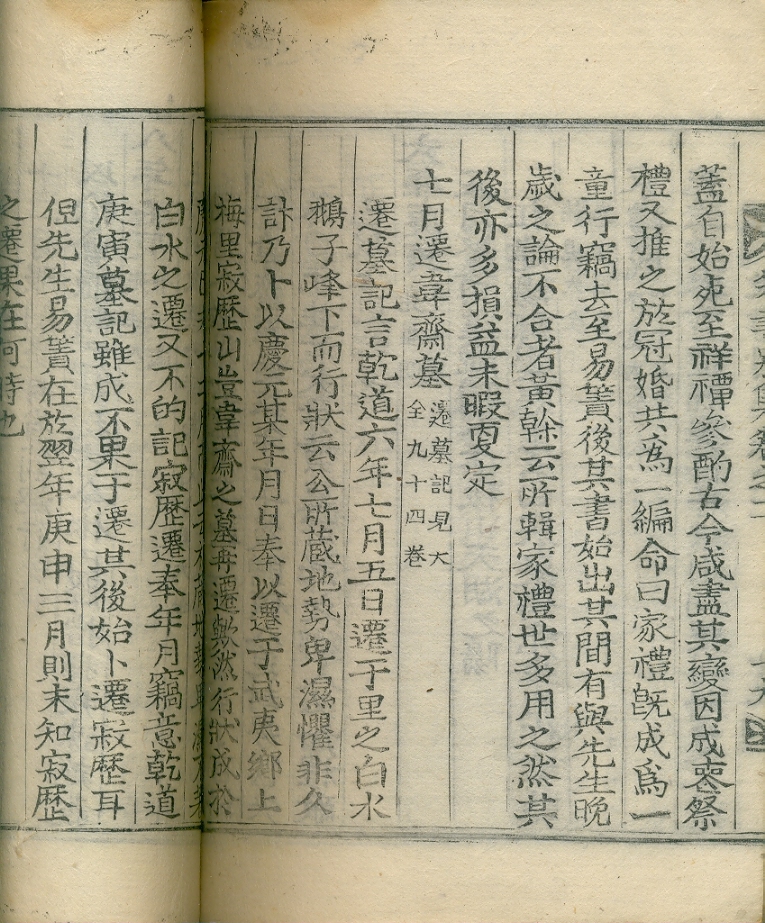 蓋自始死至祥禫參酌古今咸盡其變因成喪祭
禮又推之於冠婚共爲一編命曰家禮旣成爲一
童行竊去至易簀後其書始出其間有與先生晩
歲之論不合者黃榦云所輯家禮世多用之然其
後亦多損益未暇更定
七月遷韋齋墓 遷墓記見大
全九十四卷
遷墓記言乾道六年七月五日遷于里之白水
鵝子峰下而行狀云公所藏地勢卑濕懼非久
計乃卜以慶元某年月日奉以遷于武夷鄕上
梅里寂歷山豈韋齋之墓再遷歟然行狀成於
白水之遷又不的記寂歷遷奉年月竊意乾道
庚寅墓記雖成不果于遷其後始卜遷寂歷耳
但先生易簀在於翌年庚申三月則未知寂歷
之遷果在何時也